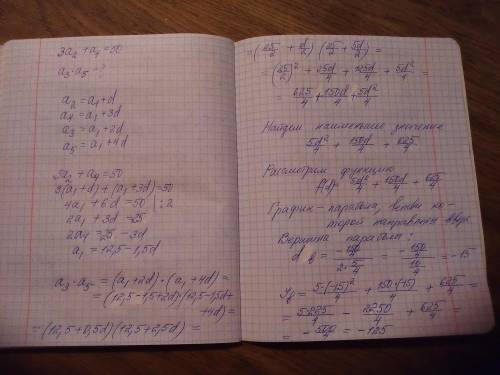 3a₂ + a₄ = 50
a₃ · a₅ – ?
a₂ = a₁ + d
a₄ = a₁ + 3d
a₃ = a₁ + 2d
a₅ = a₁ + 4d
3a₂ + a₄ = 50
3(a₁ + d) + (a₁ + 3d) = 50
4a₁ + 6d = 50 | : 2
2a₁ + 3d = 25
2a₁ = 25 – 3d
a₁ = 12,5 – 1,5d
a₃ · a₅ = (a₁ + 2d) · (a₁ + 4d) =
= (12,5 – 1,5 + 2d) · (12,5 – 1,5d +
+ 4d) =
= (12,5 + 0,5d)(12,5 + 2,5d) =
= (25/2 + d/2)(25/2 + 5d/2) =
= (25/2)² + 25d/4 + 125d/4 + 5d²/4 =
= 625/4 + 150d/4 + 5d²/4
Найдем наименьшее значение
5d²/4 + 150d/4 + 625/4
Рассмотрим функцию
f(d) = 5d²/4 + 150d/4 + 625/4
График – парабола, ветви ко-
торой направлены вверх.
Вершина параболы:
d в = (–150/4)/(2 · 5/4) = (–150/4)/(10/4) = –15
yв = 5·(–15)²/4 + 150·(–15)/4 + 625/4 =
= 5·225/4 – 2250/4 + 625/4 =
= –500/4 = –125